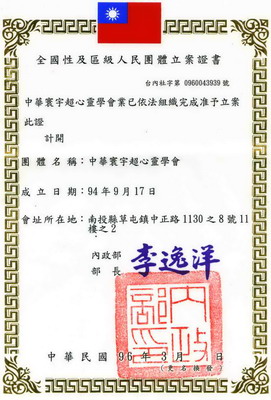 全國性及區級人民團體立案證書
台內社字第 0960043939 號
中華寰宇超心靈學會業已依法組織完成准予立案
此證
計開
團體名稱:中華寰宇超心靈學會
成立日期:94年9月17日
會址所在地:南投縣草屯鎮中正路1130之8號11
樓之2
內政部
部長 李逸洋
內政部印
中華民國 96 年 3 月 日
(更名換發)